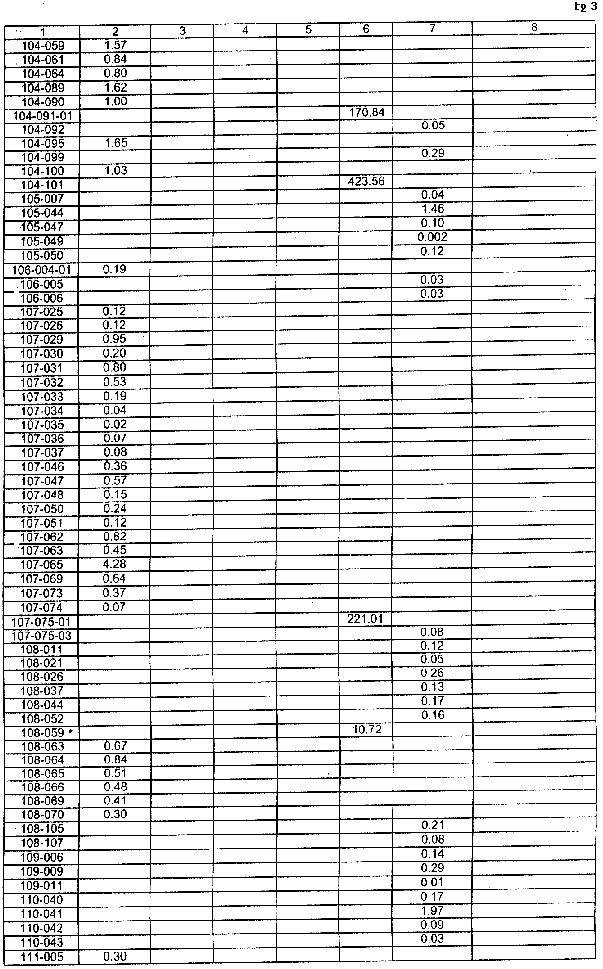 pg 3
1 2 3 4 5 6 7 8
104-059 1.57
104-061 0.84
104-064 0.80
104-089 1.62
104-090 1.00
104-091-01 170.84
104-092 0.05
104-095 1.65
104-099 0.29
104-100 1.03
104-101 423.56
105-007 0.04
105-044 1.46
105-047 0.10
105-049 0.002
105-050 0.12
106-004-01 0.19
106-005 0.03
106-006 0.03
107-025 0.12
107-026 0.12
107-029 0.95
107-030 0.20
107-031 0.80
107-032 0.53
107-033 0.19
107-034 0.04
107-035 0.02
107-036 0.07
107-037 0.08
107-046 0.36
107-047 0.57
107-048 0.15
107-050 0.24
107-051 0.12
107-062 0.62
107-063 0.45
107-065 4.28
107-069 0.64
107-073 0.37
107-074 0.07
107-075-01 221.01
107-075-03 0.08
108-011 0.12
108-021 0.05
108-026 0.26
108-037 0.13
108-044 0.17
108-052 0.16
108-059 * 10.72
108-063 0.67
108-064 0.84
108-065 0.51
108-066 0.48
108-069 0.41
108-070 0.30
108-105 0.21
108-107 0.08
109-006 0.14
109-009 0.29
109-011 0.01
110-040 0.17
110-041 1.97
110-042 0.09
110-043 0.03
111-005 0.30